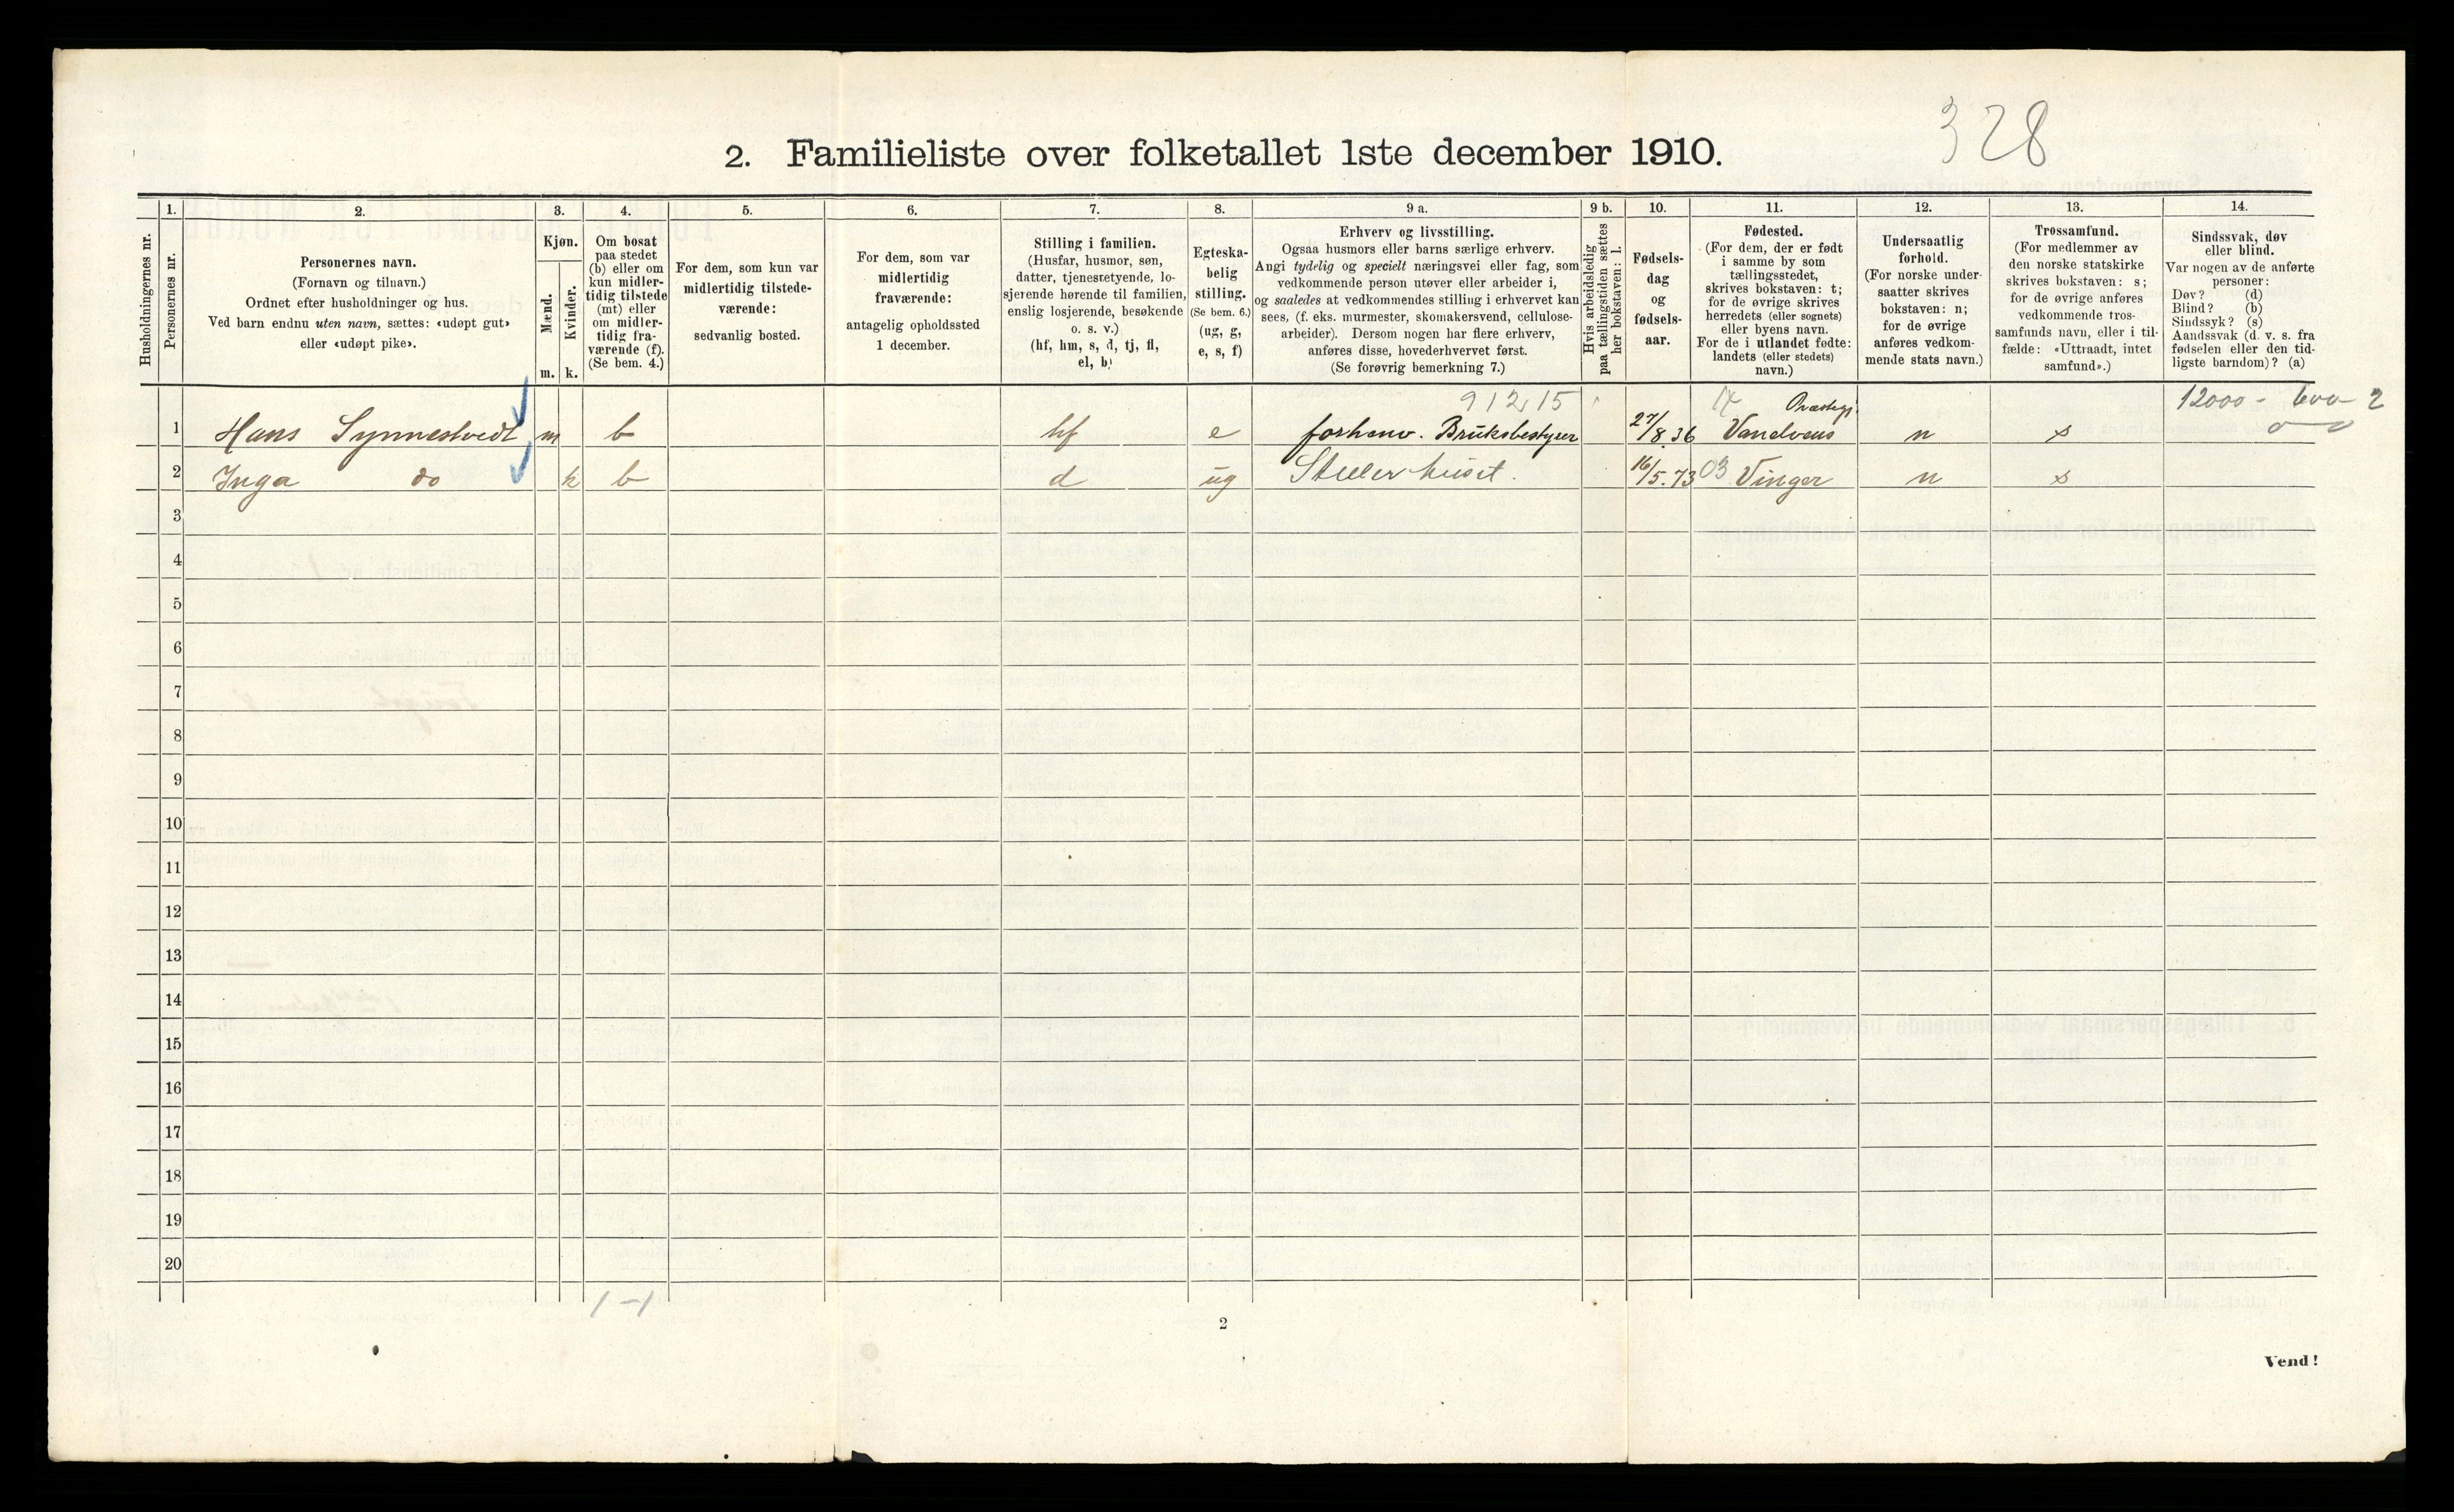 328
2. Familieliste over folketallet 1ste december 1910.
Husholdningernes nr.
1.
Personernes nr.
2.
Personernes navn.
(Fornavn og tilnavn.)
Ordnet efter husholdninger og hus.
Ved barn endnu uten navn, sættes: «udøpt gut»
eller «udøpt pike».
3.
Kjøn.
Mænd.
Kvinder.
m. k.
4.
Om bosat
paa stedet
(b) eller om
kun midler-
tidig tilstede
(mt) eller
om midler-
tidig fra-
værende (f).
(Se bem. 4.)
5.
For dem, som kun var
midlertidig tilstede-
værende:
sedvanlig bosted.
6.
For dem, som var
midlertidig
fraværende:
antagelig opholdssted
1 december.
7.
Stilling i familien.
(Husfar, husmor, søn,
datter, tjenestetyende, lo-
sjerende hørende til familien,
enslig losjerende, besøkende
o. s. v.)
(hf, hm, s, d, tj, fl,
el, b)
8.
Egteska-
belig
stilling.
(Se bem. 6.)
(ug, g,
e, s, f)
9 a.
Erhverv og livsstilling.
Ogsaa husmors eller barns særlige erhverv.
Angi tydelig og specielt næringsvei eller fag, som
vedkommende person utøver eller arbeider i,
og saaledes at vedkommendes stilling i erhvervet kan
sees, (f. eks. murmester, skomakersvend, cellulose-
arbeider). Dersom nogen har flere erhverv,
anføres disse, hovederhvervet først.
(Se forøvrig bemerkning 7.)
9 b.
Hvis arbeidsledig
paa tællingstiden sættes
her bokstaven: l.
10.
Fødsels-
dag
og
fødsels-
aar.
11.
Fødested.
(For dem, der er født
i samme by som
tællingsstedet,
skrives bokstaven: t;
for de øvrige skrives
herredets (eller sognets)
eller byens navn.
For de i utlandet fødte:
landets (eller stedets)
navn.)
12.
Undersaatlig
forhold.
(For norske under-
saatter skrives
bokstaven: n;
for de øvrige
anføres vedkom-
mende stats navn.)
13.
Trossamfund.
(For medlemmer av
den norske statskirke
skrives bokstaven: s;
for de øvrige anføres
vedkommende tros-
samfunds navn, eller i til-
fælde: «Uttraadt, intet
samfund».)
14.
Sindssvak, døv
eller blind.
Var nogen av de anførte
personer:
Døv? (d)
Blind? (b)
Sindssyk? (s)
Aandssvak (d. v. s. fra
fødselen eller den tid-
ligste barndom)? (a)
91215 12000 - 600 - 2
1 Hans Synnestvedt m b hf e forhenv. Bruksbestyrer 27/8.36 n s
2 Inga do k b d ug Steller huset. 16/5.73 03 Vinger n s
3
4
5
6
7
8
9
10
11
12
13
14
15
16
17
18
19
20
1 - 1
2
Vend!